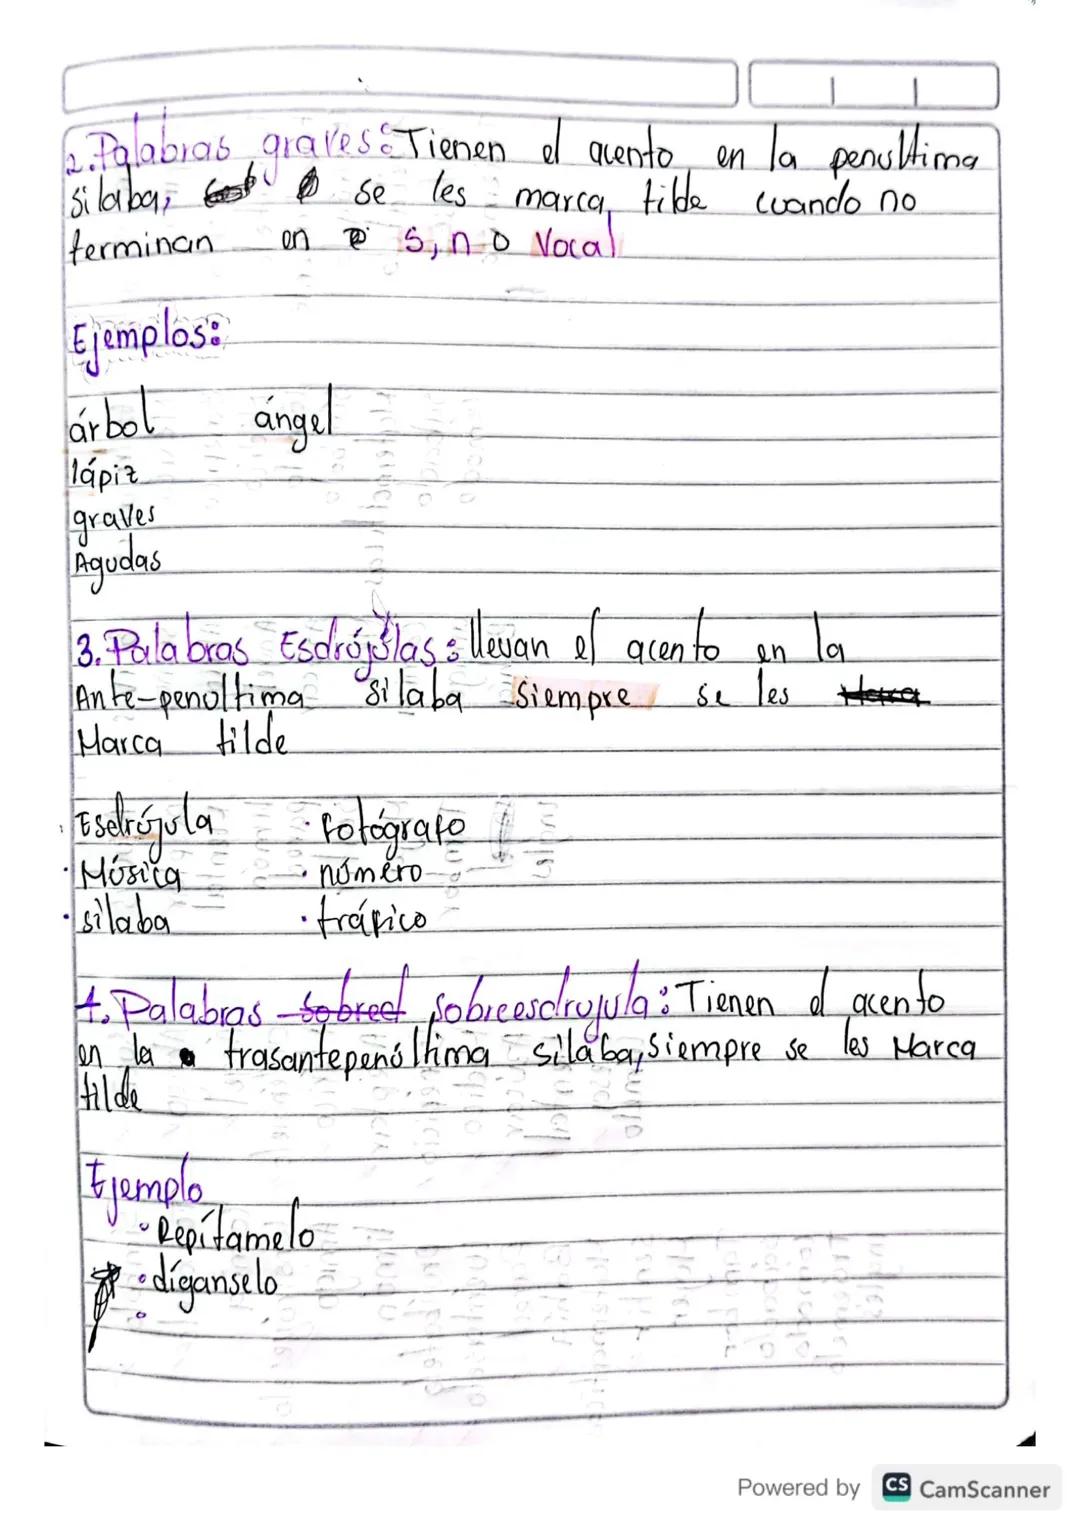 2. Palabras graves: Tienen el acento en la penultima
silaba, se les marca tilde cuando no
terminan en s, n o Vocal
Ejemplos:
árbol ángel
lápiz
graves
Agudas
3. Palabras Esdrújulas: llevan el acento en la
Ante-penultima silaba siempre se les
Marca tilde
Esdrújula · fotógrafo
· Música · número
· silaba · tráfico
4. Palabras sobreesdrujula: Tienen el acento
en la trasantepenúltima silaba, siempre se les Marca
tilde
Ejemplo
• Repítamelo
• díganselo
Powered by CS CamScanner